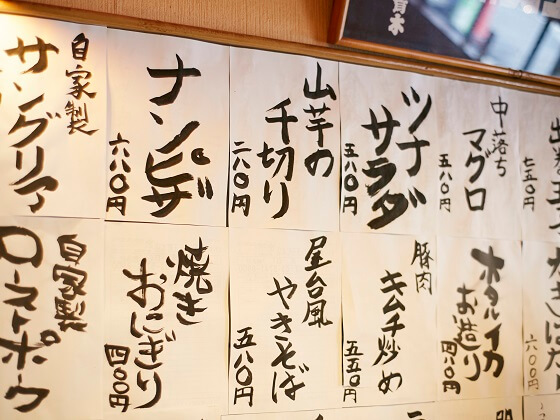 中落ち
マグロ
五八〇円
ツナ
サラダ
五八〇円
山芋の
千切り
二八〇円
ナンピザ
六八〇円
自家製
サングリア
ホタルイカ
お造り
四八〇円
豚肉
キムチ炒め
五五〇円
屋台風
やきそば
五八〇円
焼き
おにぎり
四〇〇円
自家製
ローストポーク